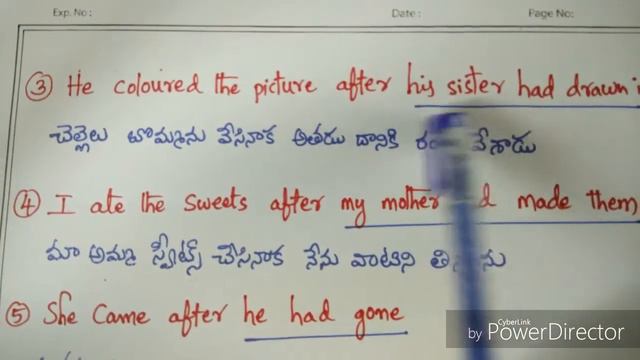 Exp. No : Date : Page No:
③ He coloured the picture after his sister had drawn
చెల్లెలు బొమ్మను వేసినాక అతడు దానికి వేశాడు
④ I ate the sweets after my mother made them
మా అమ్మ స్వీట్స్ చేసినాక నేను వాటిని
⑤ She came after he had gone
CyberLink
by PowerDirector